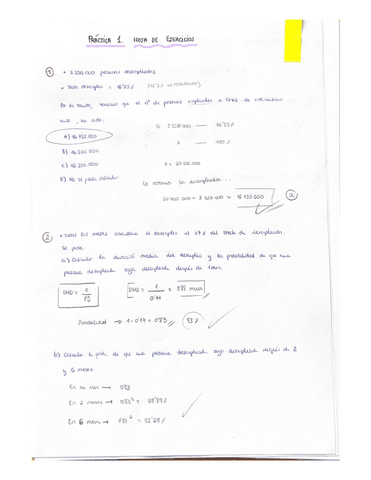 PRÁCTICA 1. HOJA DE EJERCICIOS
1 • 3 250 000 personas desempleadas
• tasa desempleo = 16'25%
Por lo tanto, tenemos que el nº de personas empleadas a final de
, ha sido:
A) 16.750.000
Si 3 250 000 — 16'25%
x — 100%
B) 16.500.000
C) 16.250.000
x = 20 000.000
D) No se puede calcular
Le restamos los desempleados...
20 000 000 - 3 250 000 = 16 750.000 a
2 • Todos los meses abandona el desempleo el 17% del stock de desempleados.
Se pide:
a) Calcular la duración media del desempleo y la probabilidad de que una
persona desempleada siga desempleada después de 1 mes.
DMD = 1
DMD = 1 / 0'17 = meses
Probabilidad → 1-0'17 = 0'83
b) Calcular la prob. de que una persona desempleada siga desempleada después de 2
y 6 meses.
En un mes → 0'83
En 2 meses → 0'83² = 68'89%
En 6 meses → 0'83⁶ = 32'69%